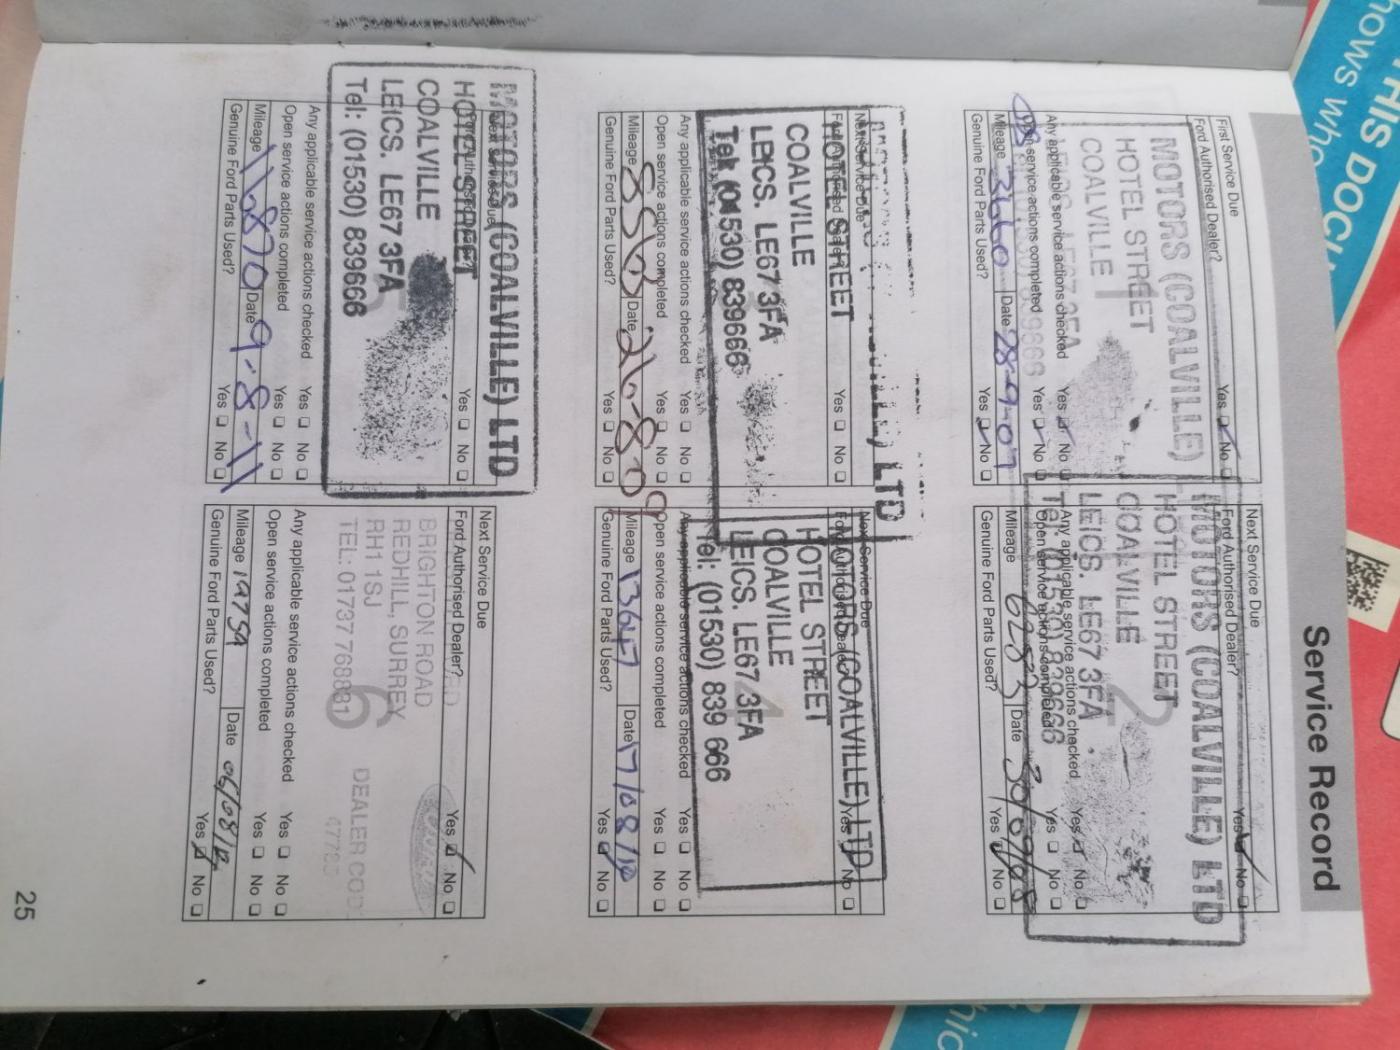 Service Record
First Service Due
Ford Authorised Dealer? Yes No
MOTORS (COALVILLE)
HOTEL STREET
COALVILLE
LEICS. LE67 3FA
1
Any applicable service actions checked Yes No
Open service actions completed Yes No
Mileage 3160 Date 28-9-07
Genuine Ford Parts Used? Yes No
Next Service Due
Ford Authorised Dealer? Yes No
MOTORS (COALVILLE) LTD
HOTEL STREET
COALVILLE
LEICS. LE67 3FA
Tel: (01530) 839666
2
Any applicable service actions checked Yes No
Open service actions completed Yes No
Mileage Date
Genuine Ford Parts Used? Yes No
Next Service Due
Ford Authorised Dealer? Yes No
LTD
HOTEL STREET
COALVILLE
LEICS. LE67 3FA
Tel: (01530) 839666
Any applicable service actions checked Yes No
Open service actions completed Yes No
Mileage 8563 Date 26-8-09
Genuine Ford Parts Used? Yes No
Next Service Due
Ford Authorised Dealer? Yes No
MOTORS (COALVILLE) LTD
HOTEL STREET
COALVILLE
LEICS. LE67 3FA
Tel: (01530) 839 666
4
Any applicable service actions checked Yes No
Open service actions completed Yes No
Mileage 13647 Date 17/08/10
Genuine Ford Parts Used? Yes No
Next Service Due
Yes No
MOTORS (COALVILLE) LTD
HOTEL STREET
COALVILLE
LEICS. LE67 3FA
Tel: (01530) 839666
Any applicable service actions checked Yes No
Open service actions completed Yes No
Mileage 16870 Date 9-8-11
Genuine Ford Parts Used? Yes No
Next Service Due
Ford Authorised Dealer? Yes No
BRIGHTON ROAD
REDHILL, SURREY
RH1 1SJ
TEL: 01737 768831
DEALER COD
6
Any applicable service actions checked Yes No
Open service actions completed Yes No
Mileage 19759 Date 06/08/12
Genuine Ford Parts Used? Yes No
25
THIS DOCU
hows who